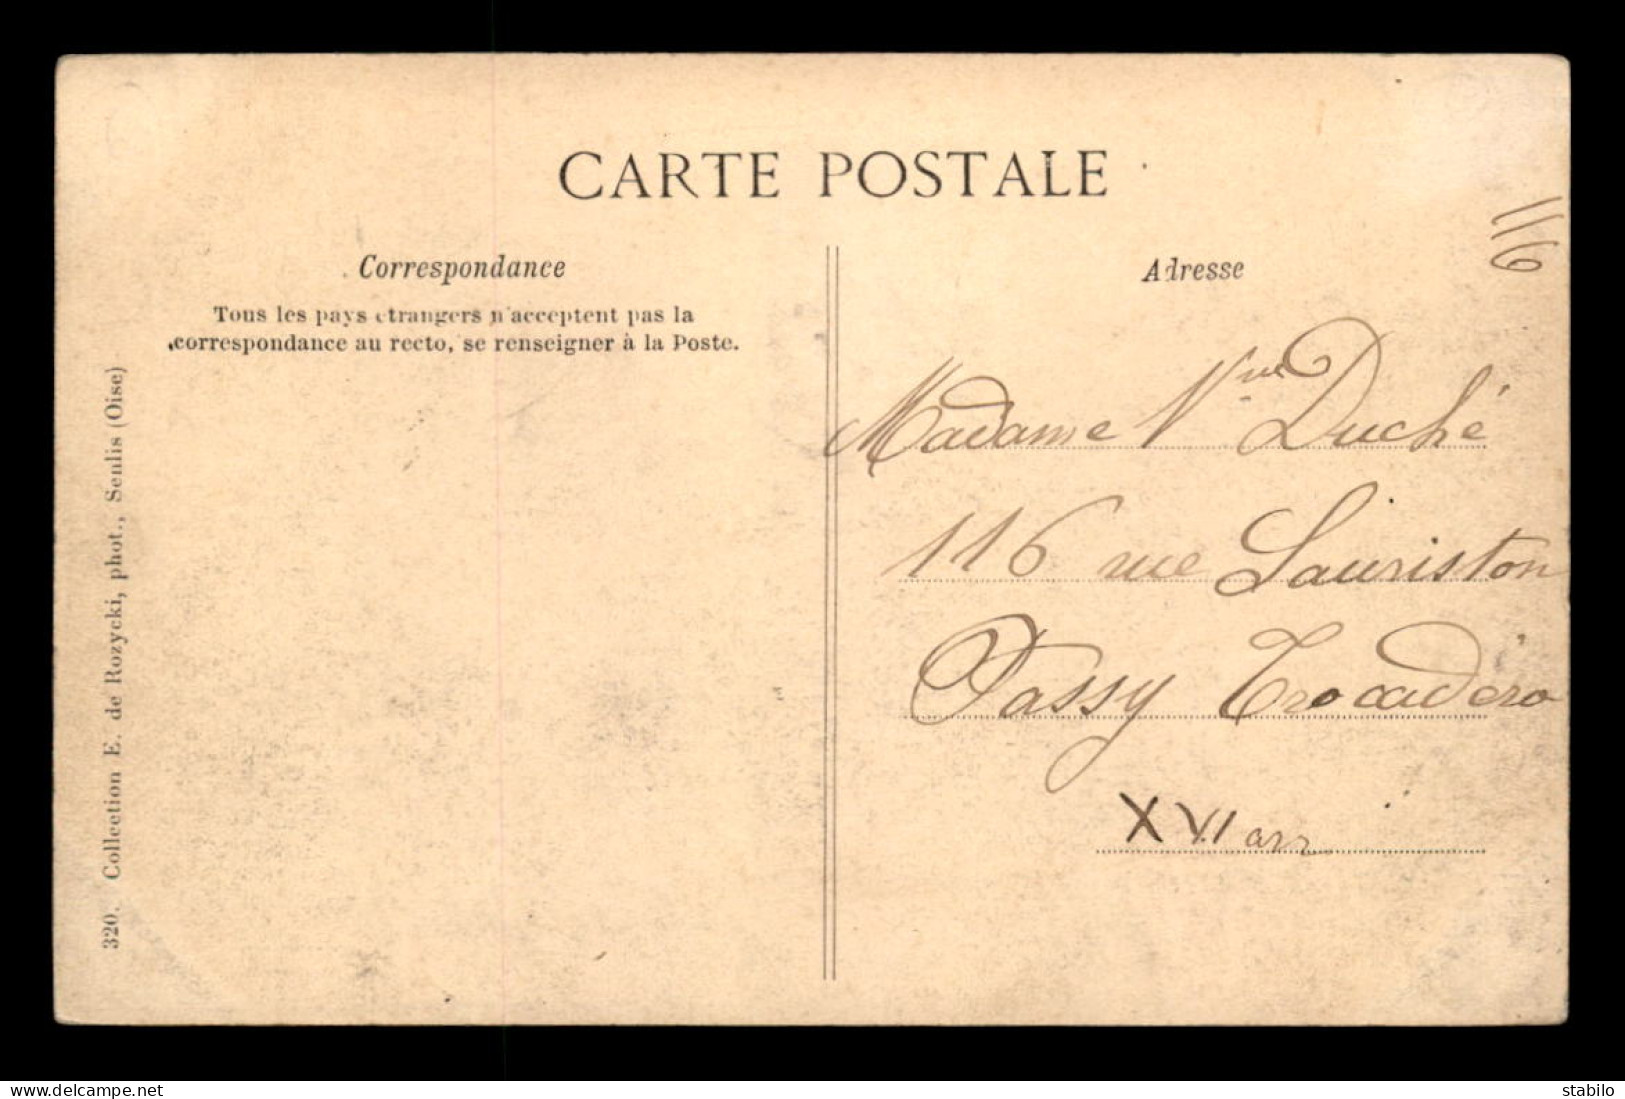 CARTE POSTALE
Correspondance
Tous les pays étrangers n'acceptent pas la
correspondance au recto, se renseigner à la Poste.
320. Collection E. de Rozycki, phot., Senlis (Oise)
Adresse
116
Madame Vve Duché
116 rue Lauriston
Passy Trocadéro
XVI arr
www.delcampe.net
stabilo